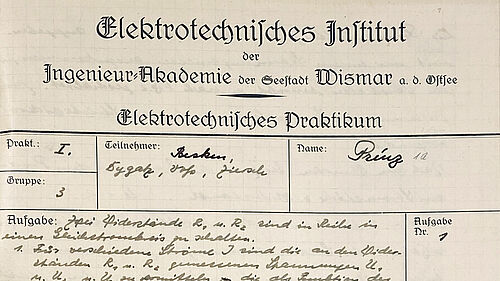 Elektrotechnisches Institut
der
Ingenieur-Akademie der Seestadt Wismar a. d. Ostsee
Elektrotechnisches Praktikum
Prakt.: I.
Teilnehmer: Besken,
Voß, Ziersch
Name: Prinz
Gruppe:
3
Aufgabe: Zwei Widerstände R₁ u. R₂ sind in Reihe in
einen Gleichstromkreis zu schalten.
Aufgabe
Nr. 1
1. Für verschiedene Ströme I sind die an den Wider-
ständen R₁ u. R₂ gemessenen Spannungen U₁
u. U₂ zu ermitteln als Funktion des